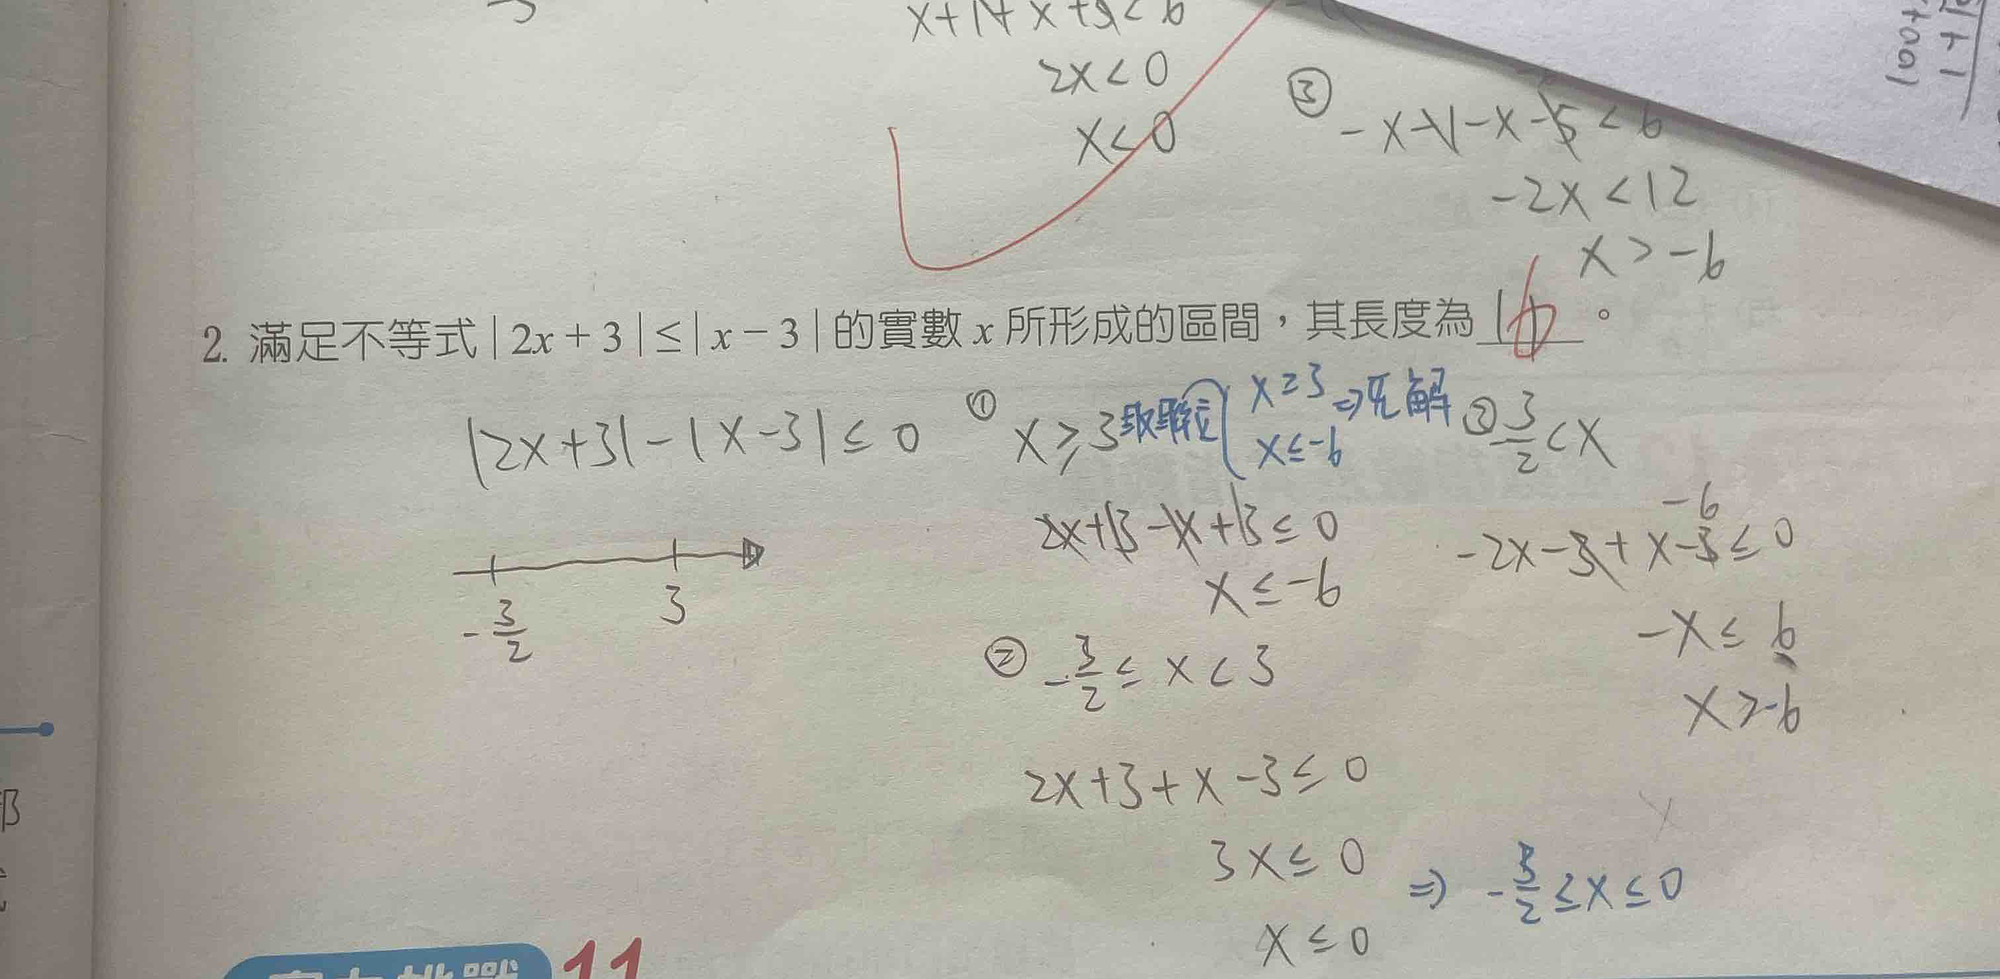 x+1+x+5<6
2x<0
x<0
③ -x-1-x-5<6
-2x<12
x>-6
2. 滿足不等式|2x+3|≤|x-3|的實數 x 所形成的區間,其長度為 6 。
|2x+3|-|x-3|≤0
-3/2 3
① x≥3 取聯立 { x≥3 x≤-6 ⇒ 無解
2x+3-x+3≤0
x≤-6
② -3/2≤x<3
2x+3+x-3≤0
3x≤0
x≤0
⇒ -3/2≤x≤0
③ 3/2<x
-2x-3+x-3≤0
-6
-x≤6
x≥-6
11